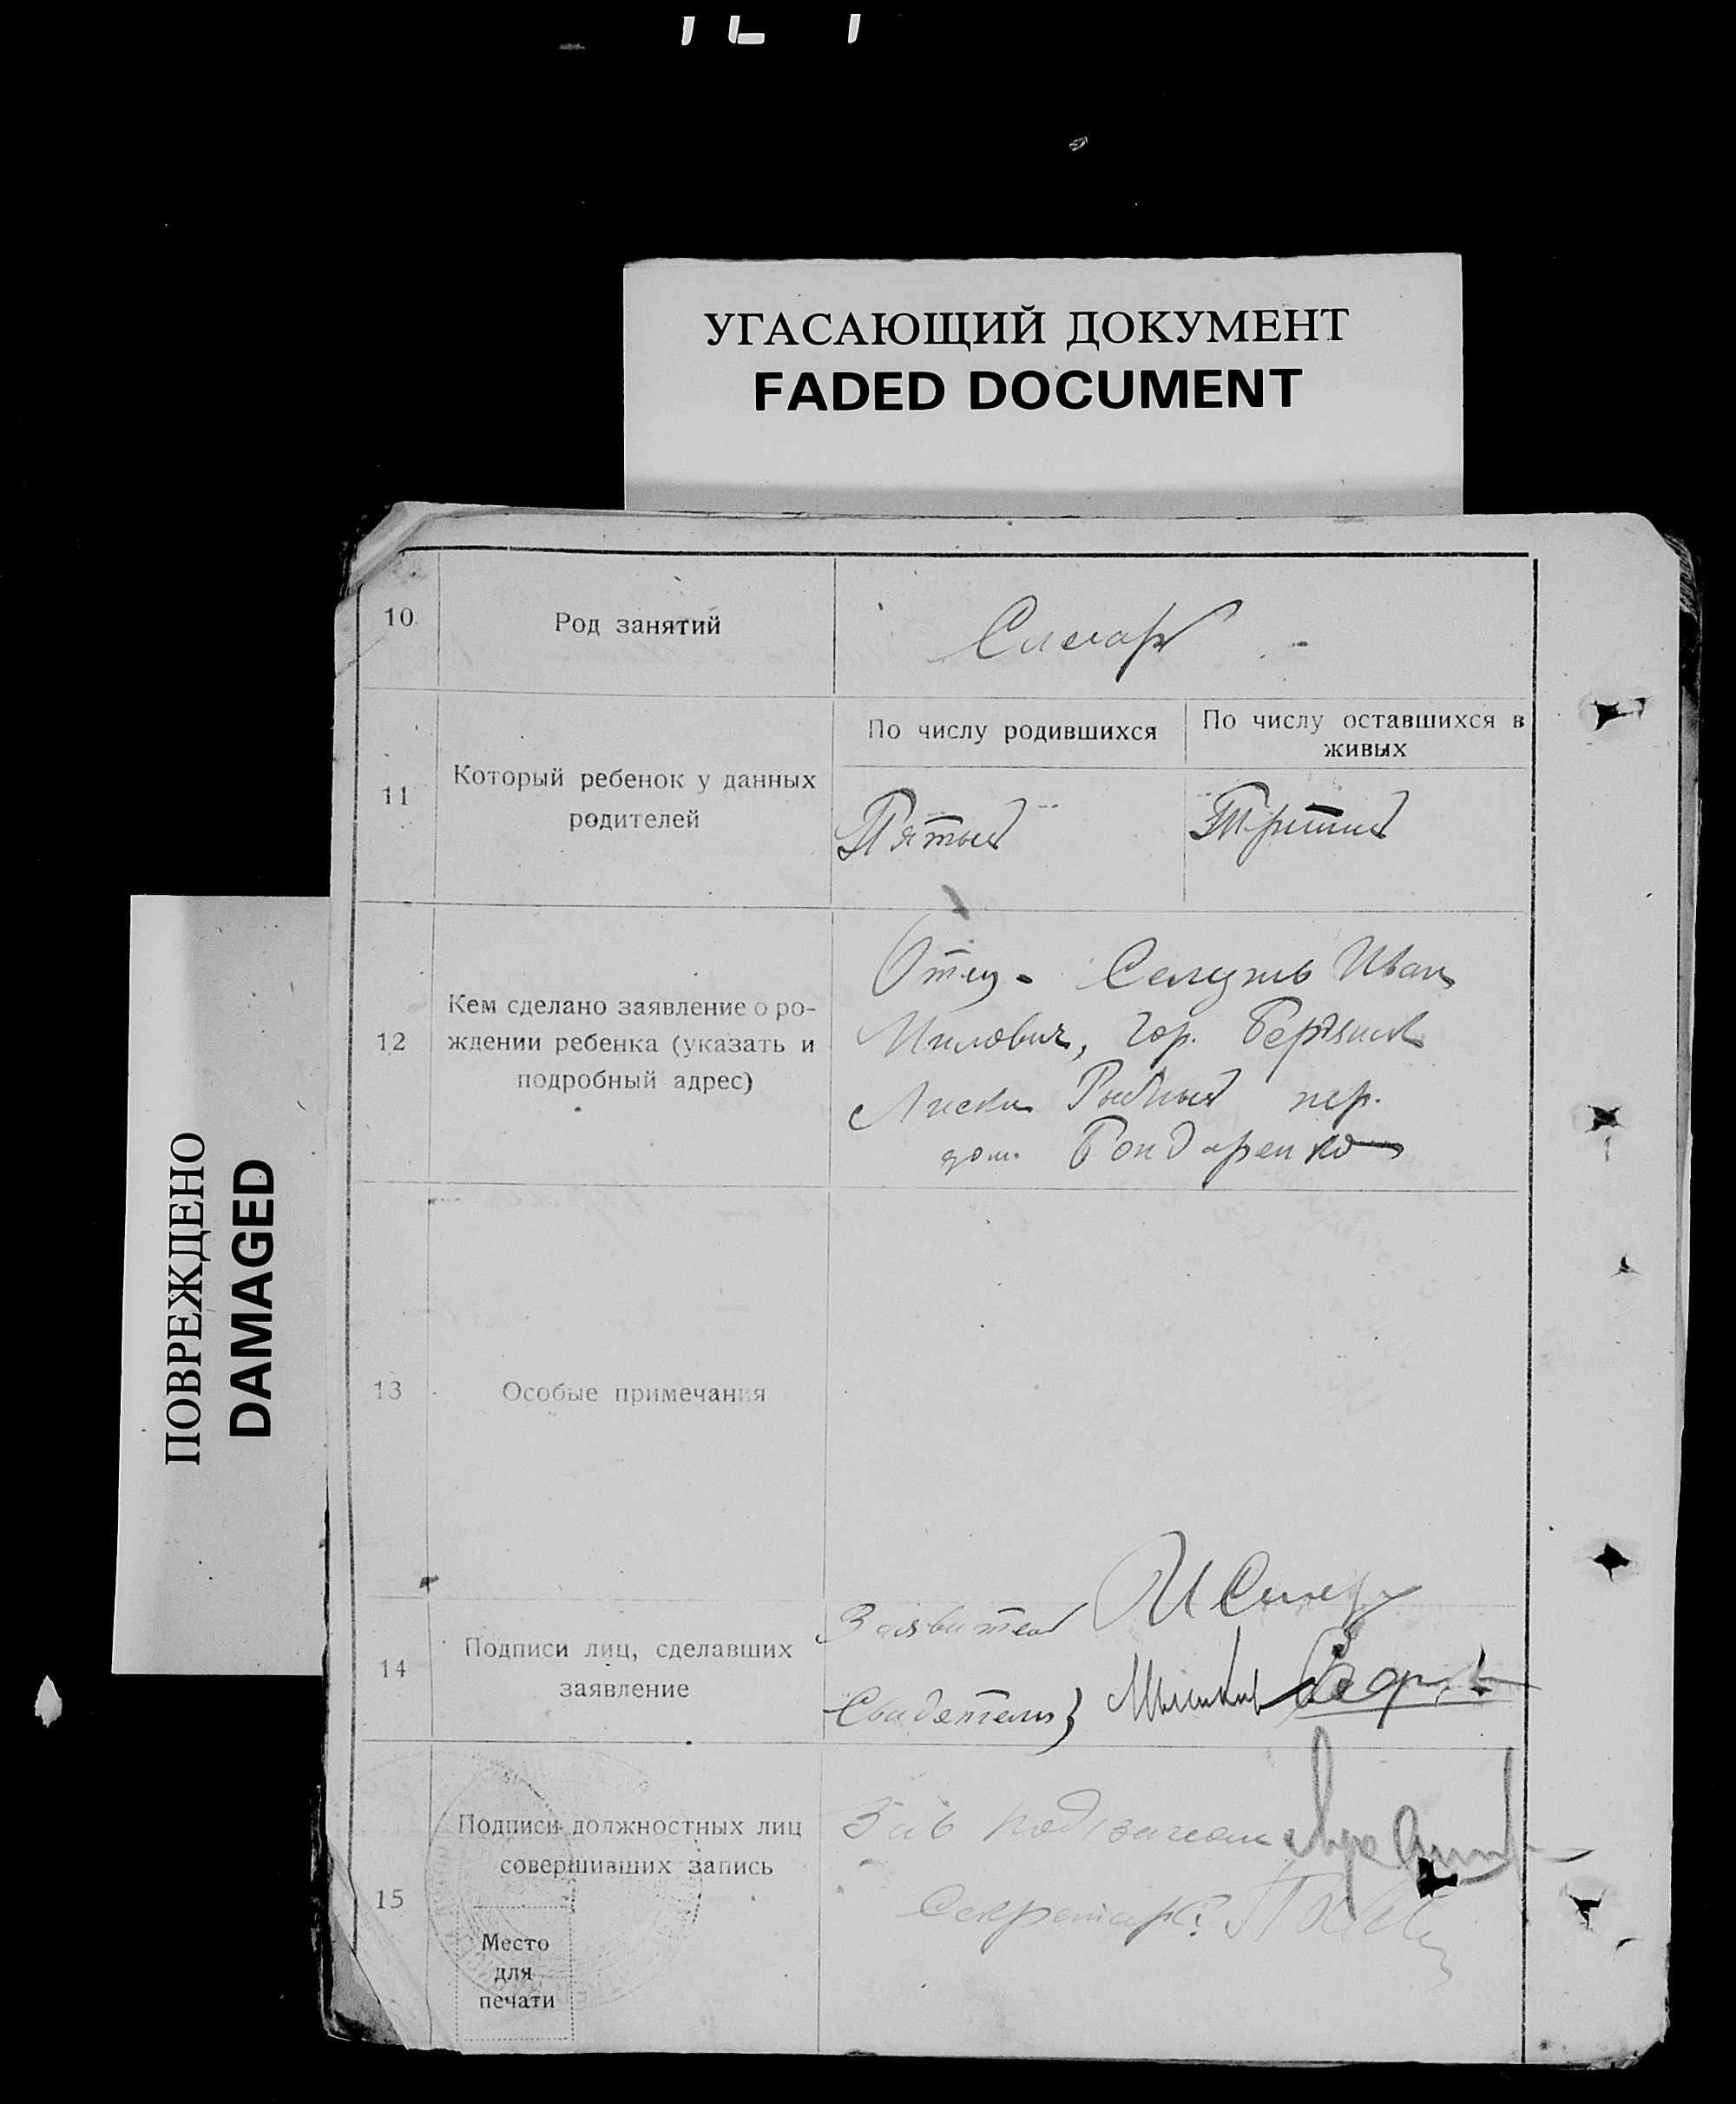 УГАСАЮЩИЙ ДОКУМЕНТ
FADED DOCUMENT
ПОВРЕЖДЕНО
DAMAGED
10
Род занятий
Слесарь
11
Который ребенок у данных
родителей
По числу родившихся
Пятый
По числу оставшихся в
живых
Третий
12
Кем сделано заявление о ро-
ждении ребенка (указать и
подробный адрес)
Отец - Иван
гор. Бердянск
Лиски Рыбный пер.
дом. Бондаренко
13
Особые примечания
14
Подписи лиц, сделавших
заявление
Заявитель
Свидетели
15
Подписи должностных лиц
совершивших запись
Место
для
печати
Зав
Секретарь